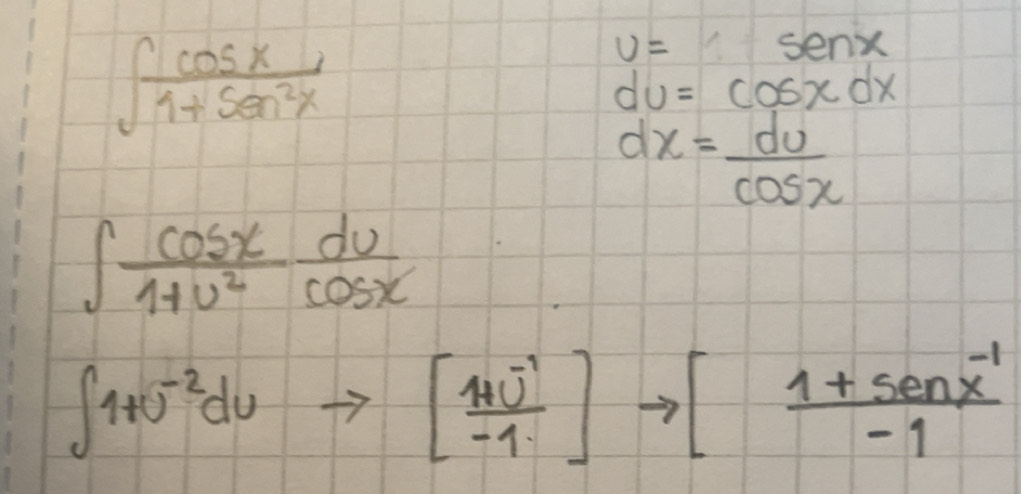 ∫ cosx / 1+sen²x
u= senx
du= cosx dx
dx= du / cosx
∫ cosx / 1+u² du / cosx
∫1+u⁻²du → [ 1+u⁻¹ / -1. ] → [ 1+senx⁻¹ / -1